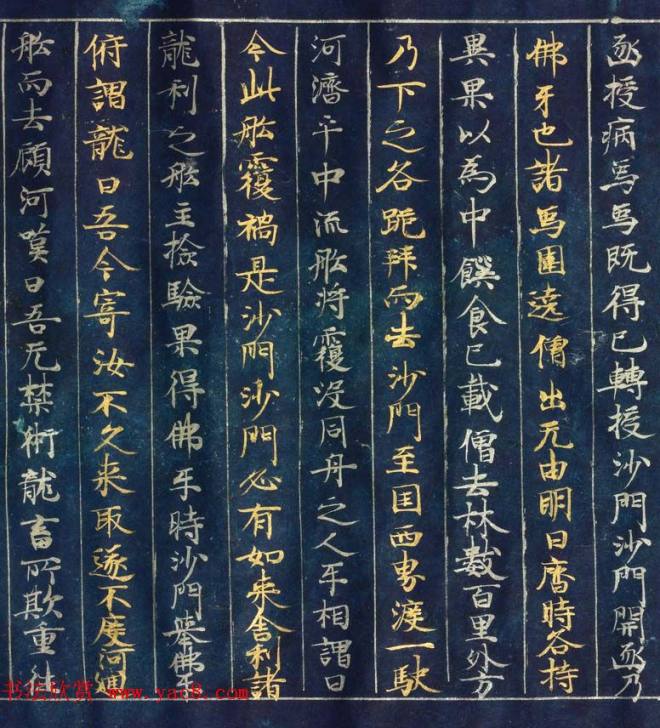 函授病象象既得已轉授沙門沙門開函乃
佛牙也諸象圍遶僧出无由明日齋時各持
異果以為中饌食已載僧去林數百里外方
乃下之各跪拜而去沙門至国西界渡一駛
河濟乎中流舩將覆没同舟之人互相謂曰
今此舩覆禍是沙門沙門必有如來舍利諸
龍利之舩主檢驗果得佛牙時沙門舉佛牙
俯謂龍曰吾今寄汝不久来取遂不度河
舩而去顧河嘆曰吾无禁術龍畜所欺重
书法欣赏 www.yac8.com